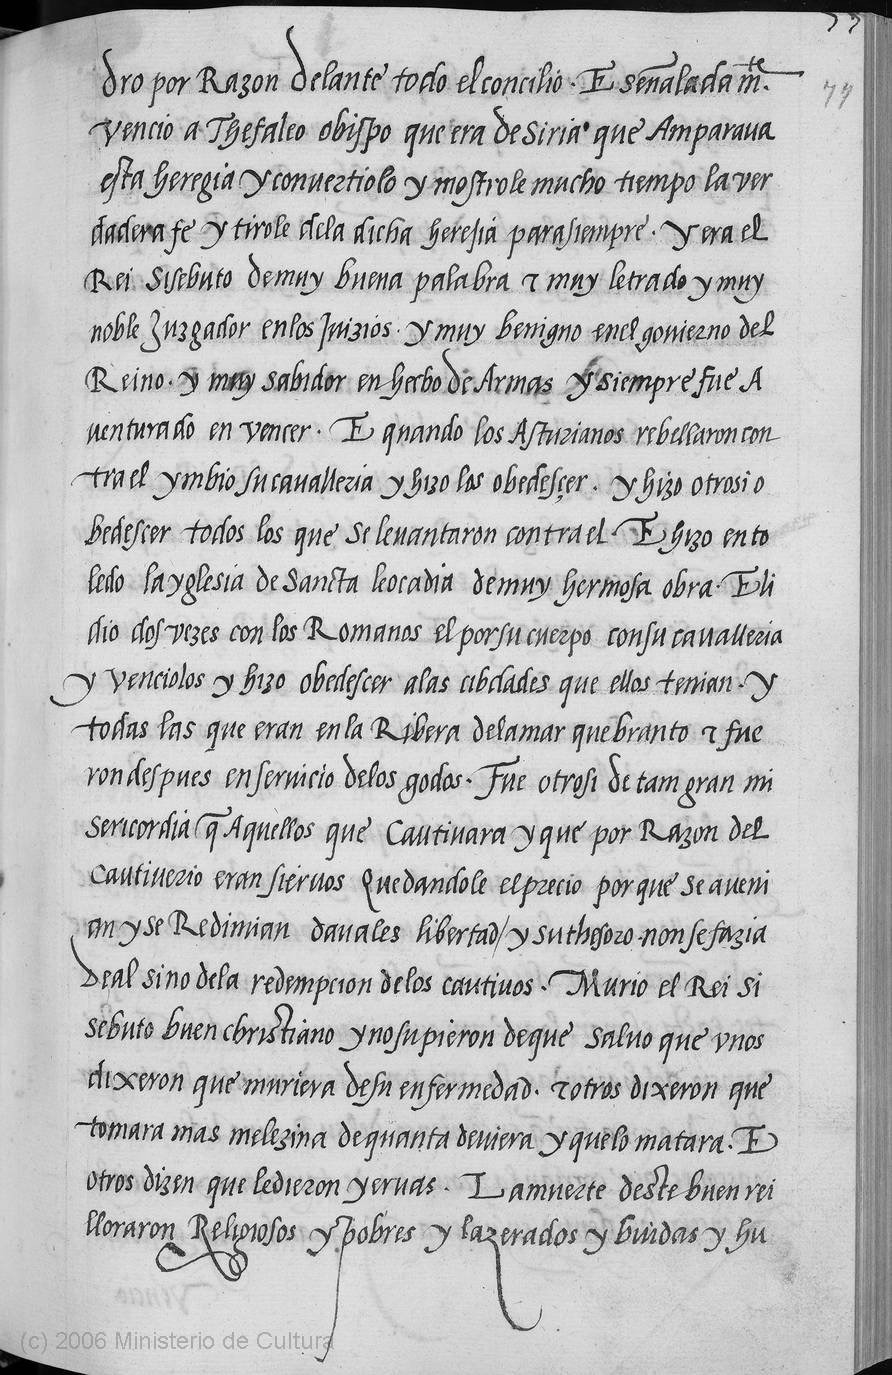 77
77
dro por Razon delante todo el concilio · E señalada mte.
vencio a Thefaleo obispo que era de Siria· que Amparaua
esta heregia y conuertiolo y mostrole mucho tiempo la ver
dadera fe y tirole dela dicha heresia para siempre · y era el
Rei Sisebuto de muy buena palabra τ muy letrado y muy
noble Juzgador en los Juizios · y muy benigno en el gouierno del
Reino · y muy sabidor en hecho de Armas y siempre fue A
uenturado en vencer · E quando los Asturianos rebellaron con
tra el ymbio su caualleria y hizo los obedesçer · y hizo otrosi o
bedescer todos los que se leuantaron contra el · E hizo en to
ledo la yglesia de Sancta leocadia de muy hermosa obra · E li
dio dos vezes con los Romanos el por su cuerpo con su caualleria
y venciolos y hizo obedescer a las cibdades que ellos tenian · y
todas las que eran en la Ribera dela mar quebranto τ fue
ron despues en seruicio delos godos · Fue otrosi de tam gran mi
sericordia q̃ Aquellos que Cautiuara y que por Razon del
Cautiuerio eran sieruos Quedandole el precio por que se aueni
an y se Redimian dauales libertad / y su thesoro non se fazia
deal sino dela redempcion delos cautiuos · Murio el Rei Si
sebuto buen christiano y no supieron de que saluo que vnos
dixeron que muriera de su enfermedad · τ otros dixeron que
tomara mas melezina de quanta deuiera y que lo matara · E
otros dizen que le dieron yeruas · La muerte deste buen rei
lloraron Religiosos y pobres y lazerados y biudas y hu
(c) 2006 Ministerio de Cultura